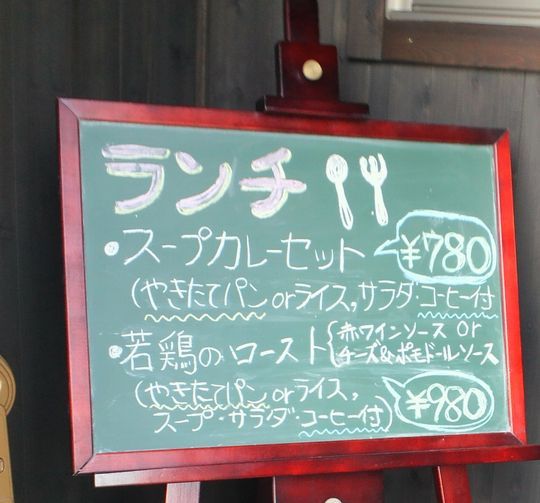 ランチ
・スープカレーセット ¥780
(やきたてパンorライス,サラダ・コーヒー付
・若鶏のロースト{赤ワインソース or
チーズ&ポモドールソース
(やきたてパンorライス,
スープ・サラダ・コーヒー付) ¥980